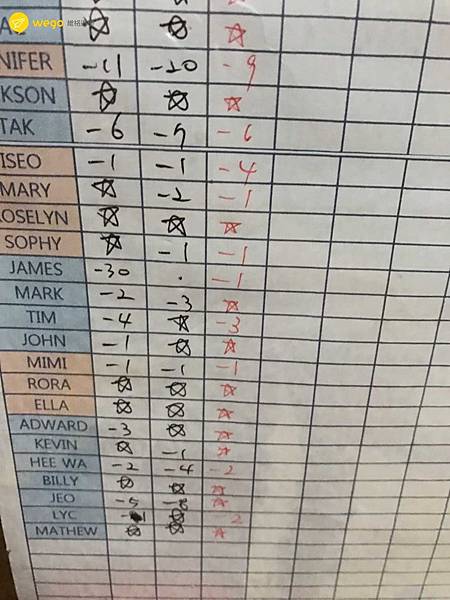 wego 維格
NIFER -11 -20 -9
KSON ☆ ☆ ☆
TAK -6 -5 -6
ISEO -1 -1 -4
MARY ☆ -2 -1
ROSELYN ☆ ☆ ☆
SOPHY ☆ -1 -1
JAMES -30 · -1
MARK -2 -3 ☆
TIM -4 ☆ -3
JOHN -1 ☆ ☆
MIMI -1 -1 -1
RORA ☆ ☆ ☆
ELLA ☆ ☆ ☆
ADWARD -3 ☆ ☆
KEVIN ☆ -1 ☆
HEE WA -2 -4 -2
BILLY ☆ ☆ ☆
JEO -5 -8 ☆
LYC ☆
MATHEW ☆ ☆ ☆